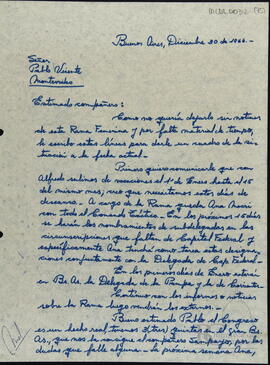 Buenos Aires, Diciembre 30 de 1966.-
Señor
Pablo Vicente
Montevideo
Estimado compañero:
Como no quería dejarlo sin noticias
de esta Rama Femenina y por falta material de tiempo,
le escribo estas líneas para darle un cuadro de la si-
tuación a la fecha actual.-
Primero quiero comunicarle que con
Alfredo salimos de vacaciones el 1º de Enero hasta el 15
del mismo mes, creo que necesitamos estos días de
descanso. A cargo de la Rama queda Ana
con todo el Comando Táctico.- En los próximos 15 días
se harán los nombramientos de subdelegadas en las
circunscripciones que faltan de Capital Federal y
específicamente Ana tendrá como tarea estas designa-
ciones conjuntamente con la Delegada de Cap. Federal.
En los primeros días de Enero estarán
en Bs. As. la Delegada de la Pampa y la de Corrientes.
Continúo con los informes o noticias
sobre la Rama luego vendrán los externos.-
Bueno estimado Pablo el Congreso
es un hecho real, tenemos quintas en el Gran Bs.
As.
dudas que falle alguna.- la próxima semana Ana,